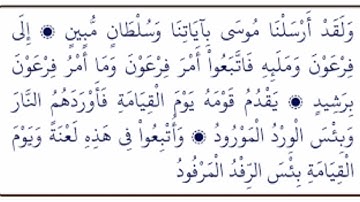 وَلَقَدْ أَرْسَلْنَا مُوسَى بِآيَاتِنَا وَسُلْطَانٍ مُّبِينٍ ۞ إِلَى
فِرْعَوْنَ وَمَلَئِهِ فَاتَّبَعُواْ أَمْرَ فِرْعَوْنَ وَمَا أَمْرُ فِرْعَوْنَ
بِرَشِيدٍ ۞ يَقْدُمُ قَوْمَهُ يَوْمَ الْقِيَامَةِ فَأَوْرَدَهُمُ النَّارَ
وَبِئْسَ الْوِرْدُ الْمَوْرُودُ ۞ وَأُتْبِعُواْ فِي هَذِهِ لَعْنَةً وَيَوْمَ
الْقِيَامَةِ بِئْسَ الرِّفْدُ الْمَرْفُودُ